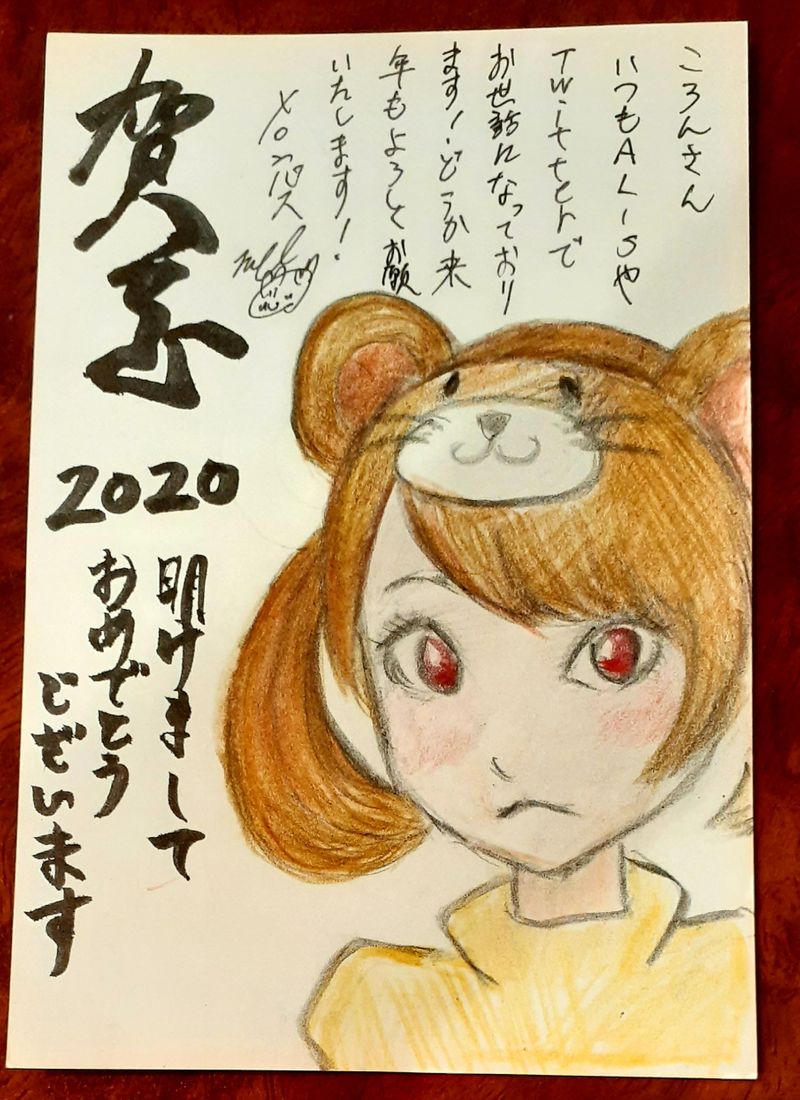 ころんさん
いつもALISや
Twitterで
お世話になっており
ます!どうか来
年もよろしくお願
いたします!
メロンパス
賀正
2020
明けまして
おめでとう
ございます